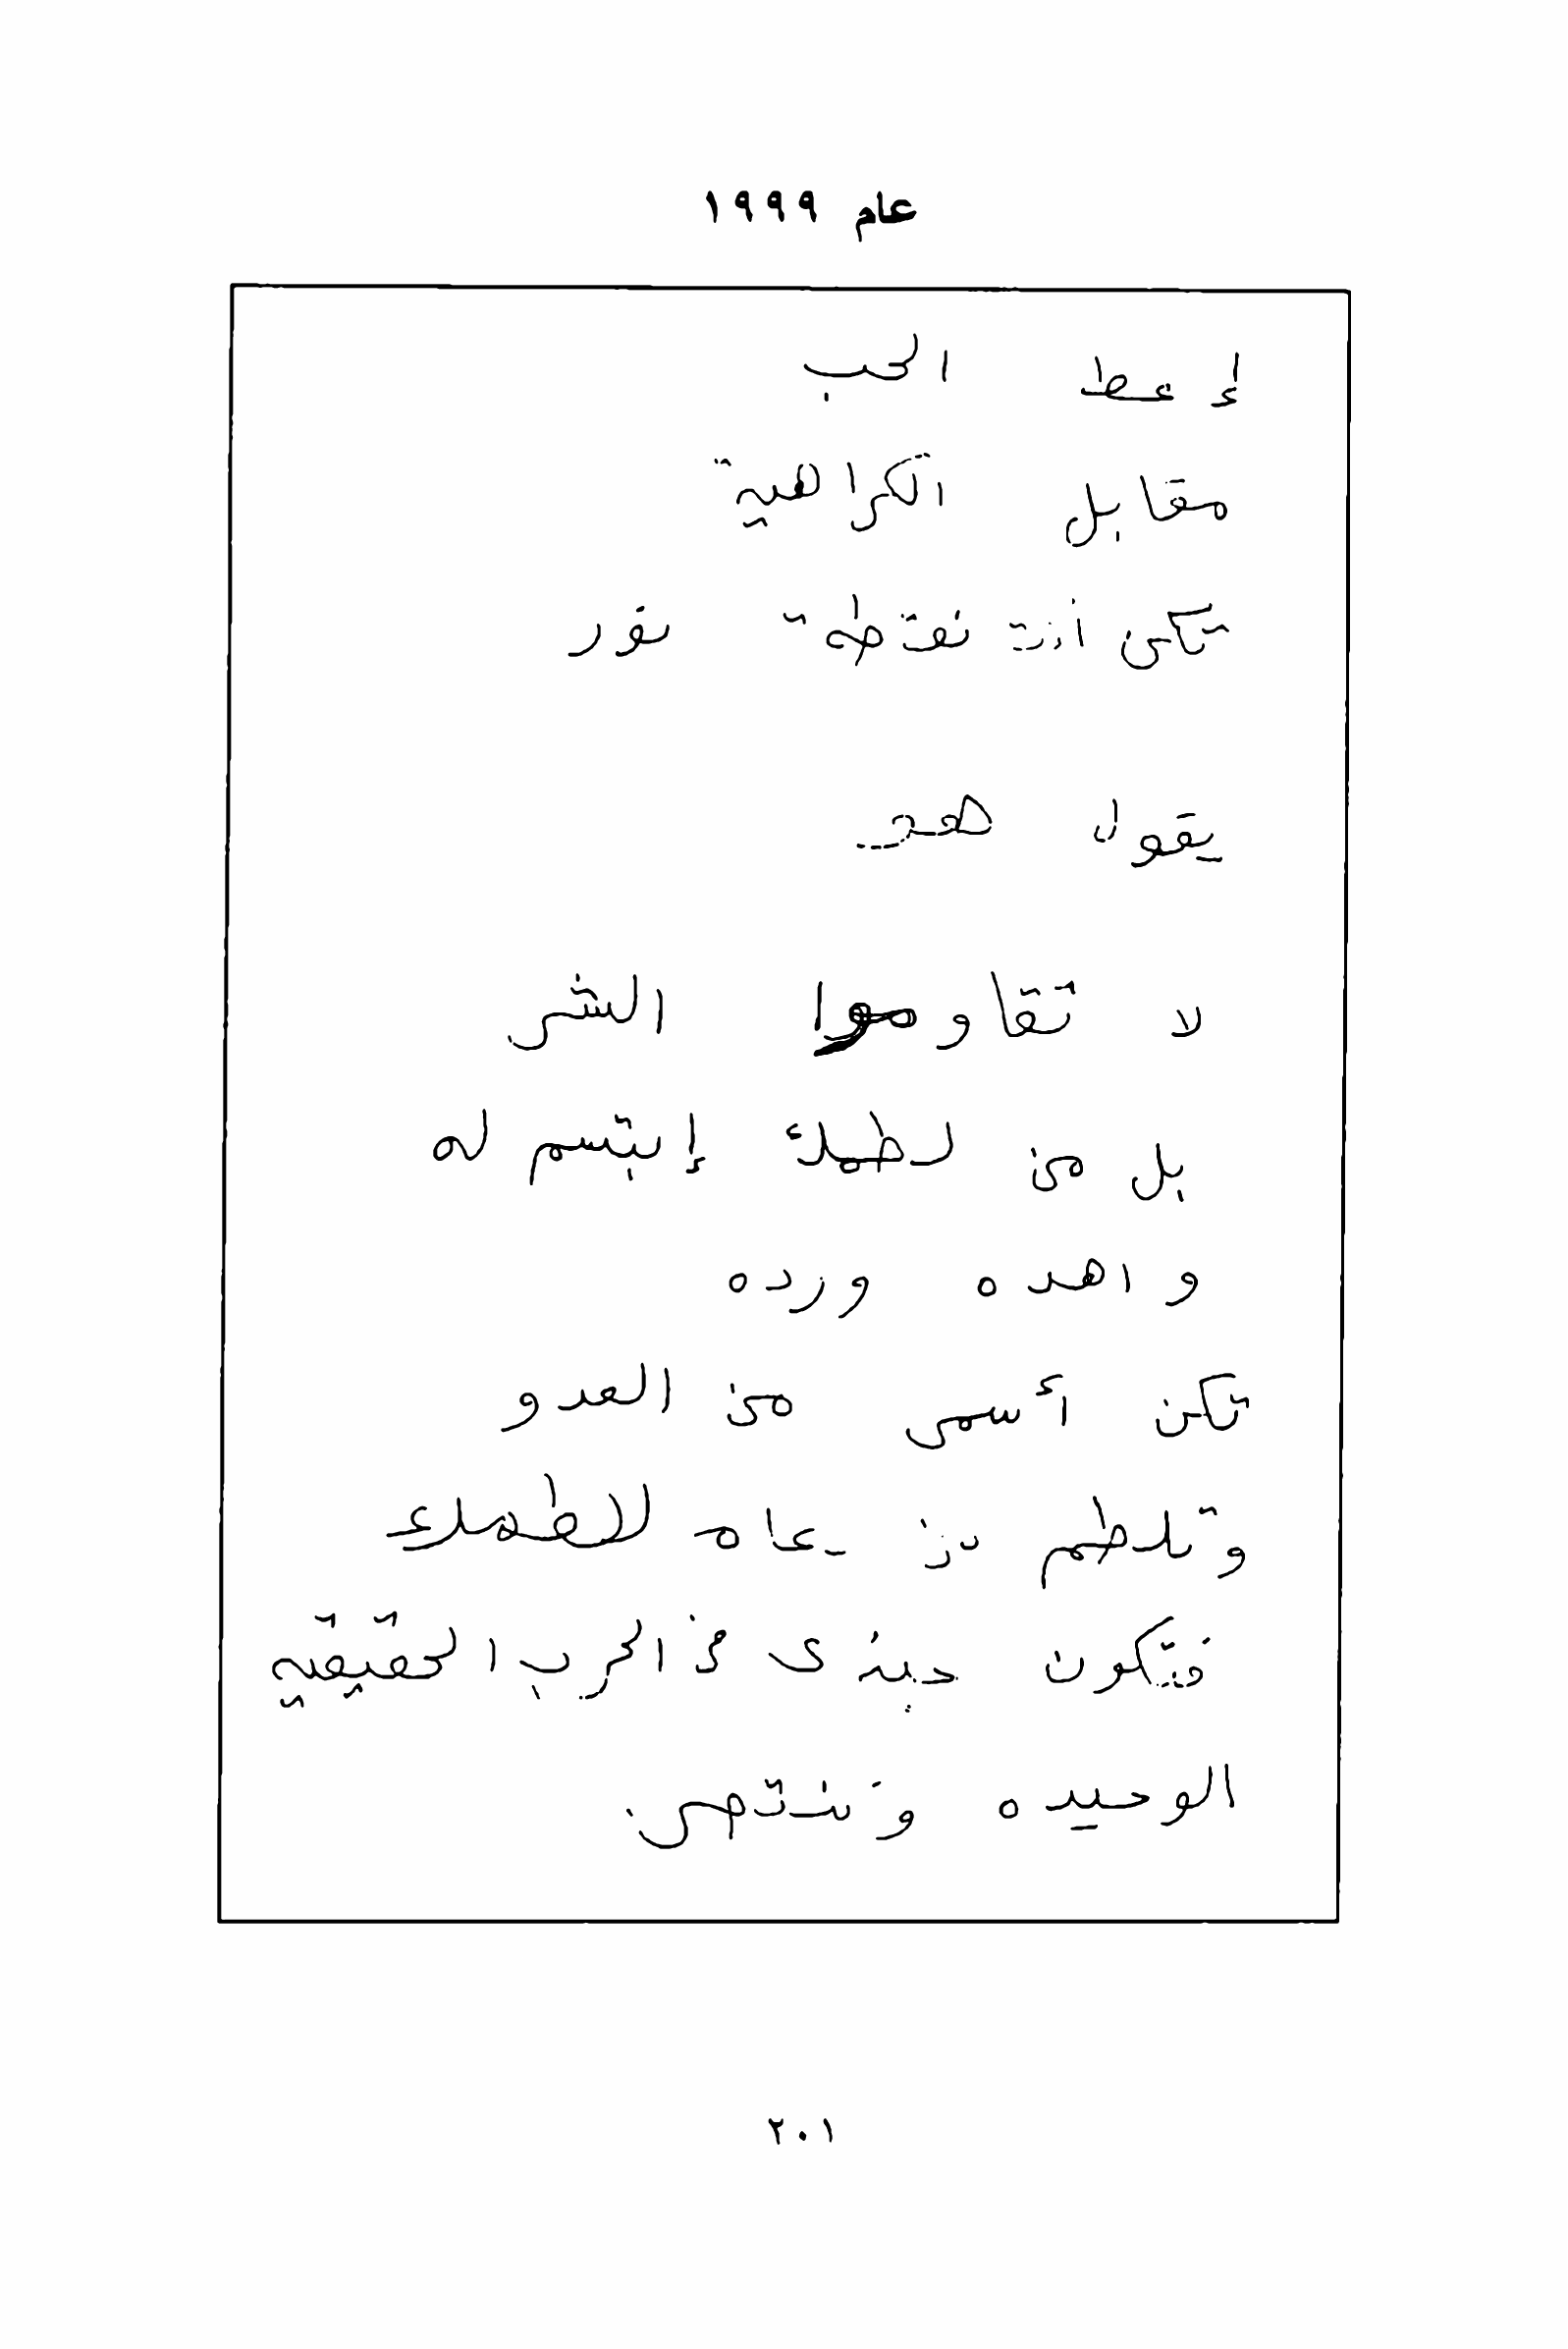 عام ١٩٩٩
إعط الحب
مقابل الكراهية
تكن أنت نقطة نور
يقول
لا تقاوموا الشر
بل من لطمك إبتسم له
واهده ورده
تكن أسمى من العدو
وتلطم من
فتكون حينئذ في الحرب الحقيقيه
الوحيده وتنتصر
٢٠١